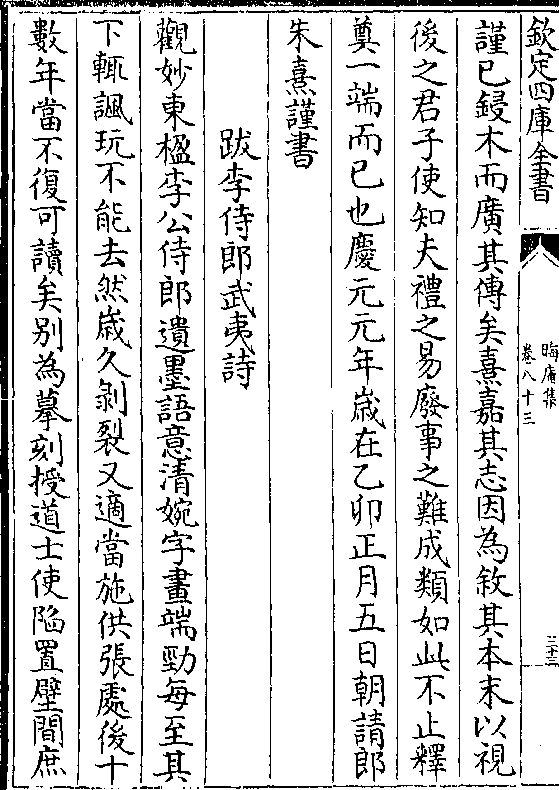 欽定四庫全書
晦庵集
卷八十三
三十三
謹已鋟木而廣其傳矣熹嘉其志因為敘其本末以視
後之君子使知夫禮之易廢事之難成類如此不止釋
奠一端而已也慶元元年歲在乙卯正月五日朝請郎
朱熹謹書
跋李侍郎武夷詩
觀妙東楹李公侍郎遺墨語意清婉字畫端勁每至其
下輒諷玩不能去然歲久剥裂又適當施供張處後十
數年當不復可讀矣别為摹刻授道士使陷置壁間庶